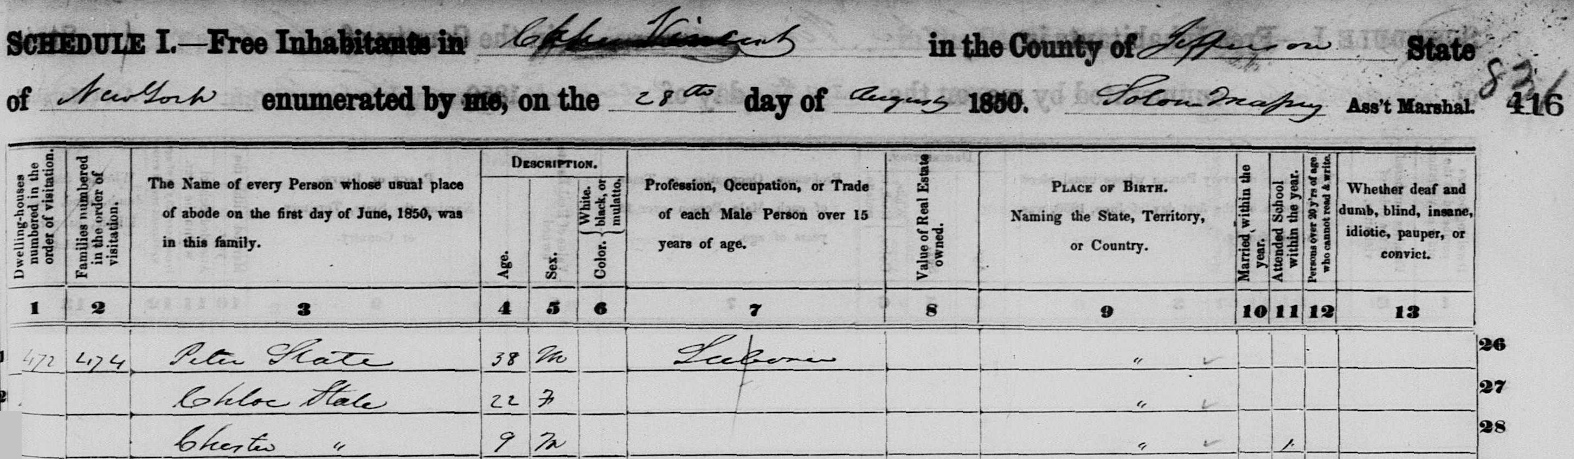 SCHEDULE I.—Free Inhabitants in Cape Vincent in the County of Jefferson State
of New York enumerated by me, on the 28th day of August 1850. Ass't Marshal. 831 416
Dwelling-houses numbered in the order of visitation.
Families numbered in the order of visitation.
The Name of every Person whose usual place of abode on the first day of June, 1850, was in this family.
DESCRIPTION.
Age.
Sex.
Color. White, black, or mulatto.
Profession, Occupation, or Trade of each Male Person over 15 years of age.
Value of Real Estate owned.
PLACE OF BIRTH. Naming the State, Territory, or Country.
Married within the year.
Attended School within the year.
Persons over 20 y'rs of age who cannot read & write.
Whether deaf and dumb, blind, insane, idiotic, pauper, or convict.
1 2 3 4 5 6 7 8 9 10 11 12 13
1 472 474 Peter Skate 38 M Laborer " ✓ 26
2 Chloe Skate 22 F " ✓ 27
Chester " 9 M " ✓ 1 28